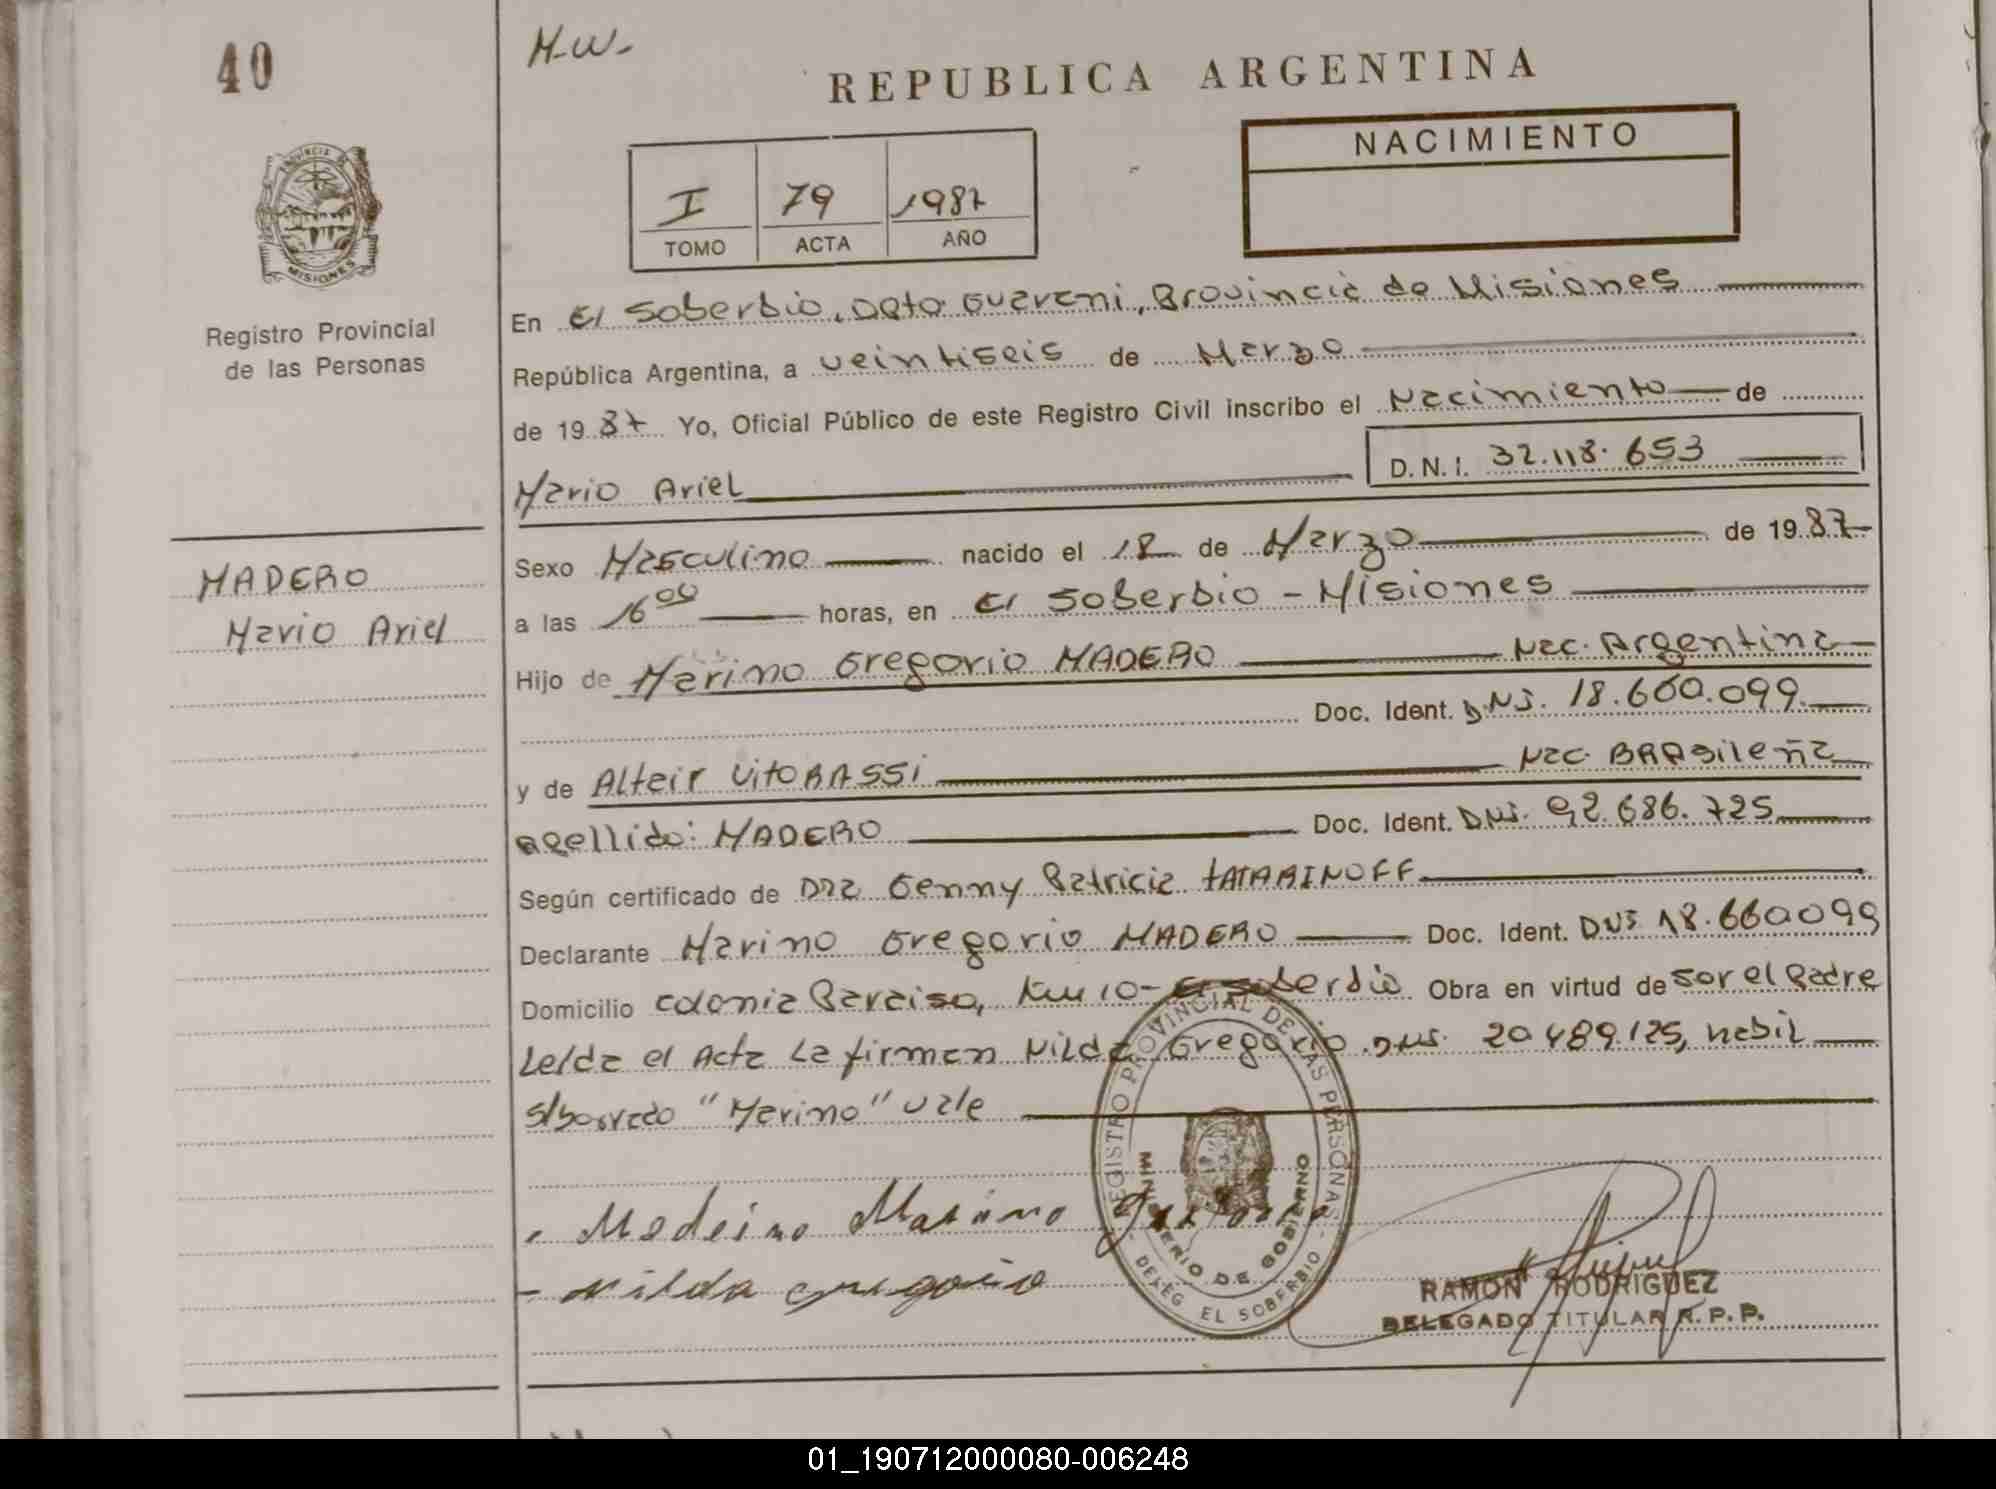 40
M-W-
REPUBLICA ARGENTINA
NACIMIENTO
I 79 1987
TOMO ACTA AÑO
PROVINCIA DE MISIONES
Registro Provincial
de las Personas
En El Soberbio, Dpto Guarani, Provincia de Misiones
República Argentina, a veintiseis de Marzo
de 1987 Yo, Oficial Público de este Registro Civil inscribo el Nacimiento de
D.N.I. 32.118.653
Mario Ariel
MADERO
Mario Ariel
Sexo Masculino nacido el 18 de Marzo de 1987
a las 16 00 horas, en El Soberbio - Misiones
Hijo de Marino Gregorio MADERO Nac. Argentina
Doc. Ident. DNI. 18.660.099
y de Alteir VitoRASSi Nac. BRASileña
apellido: MADERO Doc. Ident. DNI. 92.686.725
Según certificado de Dra Genny Patricia TATARINOFF
Declarante Marino Gregorio MADERO Doc. Ident. DNI 18.660099
Domicilio Colonia Paraiso, Km 10- El Soberbio Obra en virtud de ser el Padre
Leída el Acta La firman Nilda Gregorio DNI. 20.489.125, habil
S/borrado "Marino" vale
Madeimo Marino
- Nilda Gregorio
REGISTRO PROVINCIAL DE LAS PERSONAS
MINISTERIO DE GOBIERNO
DELEG. EL SOBERBIO
RAMON RODRIGUEZ
DELEGADO TITULAR R.P.P.
01_190712000080-006248